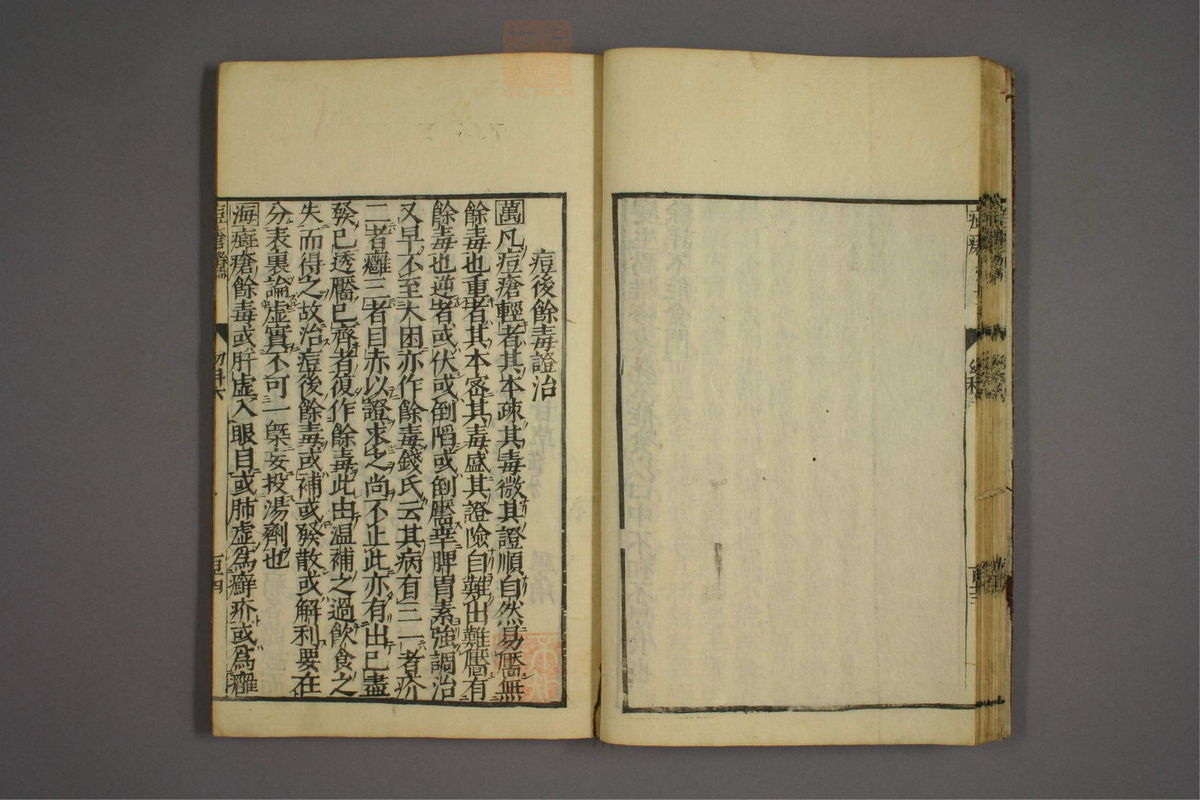 痘後餘毒證治
萬凡痘瘡輕者其本疎其毒微其證順自然易靨無
餘毒也重者其本密其毒盛其證險自難出難靨有
餘毒也逆者或伏或倒陷或倒靨幸脾胃素強調治
又早不至大困亦作餘毒錢氏云其病有三一者疥
二者癰三者目赤以證求之尚不止此亦有出已盡
發已透靨已齊者復作餘毒此由温補之過飲食之
失而得之故治痘後餘毒或補或發散或解利要在
分表裏論虛實不可一槩妄投湯劑也
海痘瘡餘毒或肝虛入眼目或肺虛為癬疥或為癰
痘瘡證
幼科六
百四